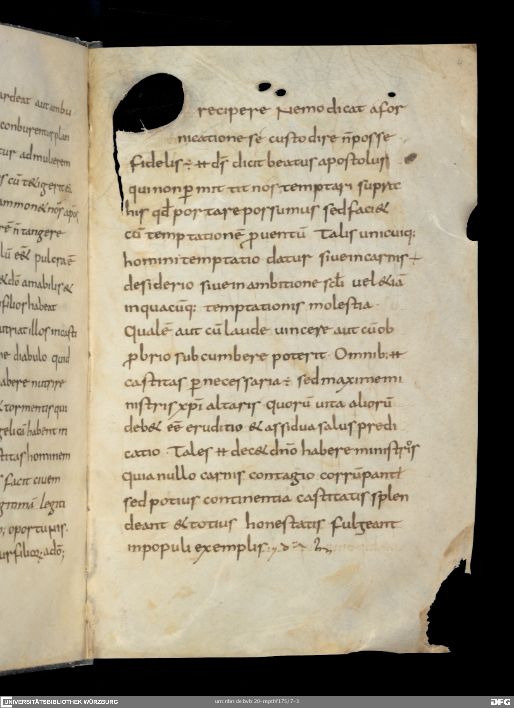 ardeat aut ambu
conburentur plan
tur ad mulierem
s cū t& igerit
ammon& nōs apōs
rē n̄ tangere
lū eē pulcrā ē
&dō amabilis &
filios habeat
utriat illos incasti
ne diabulo quid
abere nutrire
& tormentis qui
gelicū habent in
titas hominem
s facit ciuem
legiti
oportunis.
ur filiq; adō;
recipere Nemo dicat a for
nicatione se custodire n̄ posse
Fidelis ÷ ƕ d̄s dicit beatus apostolus
qui non ꝑmittit nos temptari supra
his qđ portare possumus sed faci&
cū temptationē ꝓuentū Talis unicuiq;
homini temptatio datur siue in carnis
desiderio siue in ambitione scƚi uel &iā
in quacūq; temptationis molestia
Qualē aut cū laude uincere aut cū ob
ꝓbrio subcumbere poterit Omnib; ƕ
castitas ꝑnecessaria ÷ sed maxime mi
nistris xp̄i altaris quorū uita aliorū
deb& eē eruditio & assidua salus predi
catio Tales ƕ dec& dn̄o habere ministros
quia nullo carnis contagio corrūpant
sed potius continentia castitatis splen
deant & totius honestatis fulgeant
in populi exemplis
UNIVERSITÄTSBIBLIOTHEK WÜRZBURG
urn:nbn:de:bvb:20-mpthf175/7-3
DFG